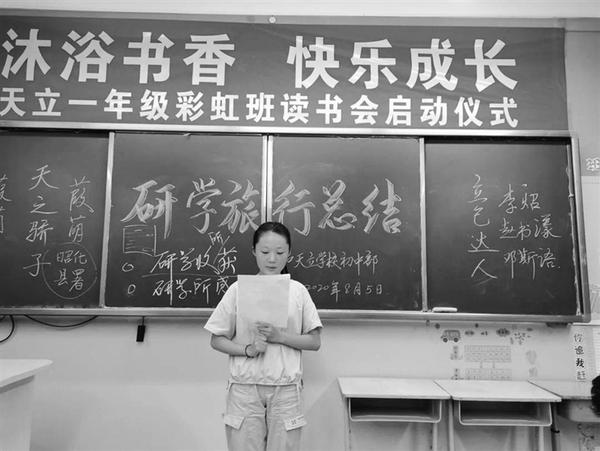 沐浴书香 快乐成长
天立一年级彩虹班读书会启动仪式
天之骄子
葭萌
昭化
县署
研学旅行总结
研学收获
研学所感
天立学校初中部
2020年8月5日
立己达人
李昭
赵书漾
邓斯语
你追我赶